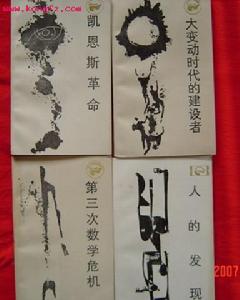 www.kongfz.com
凯恩斯革命
大变动时代的建设者
第三次数学危机
人的发现
2007